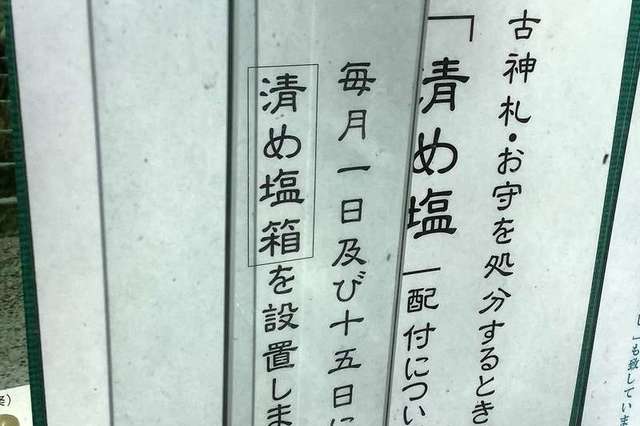 し」も致していま
古神札・お守を処分するとき
「清め塩」配付につい
毎月一日及び十五日に
清め塩箱を設置しま